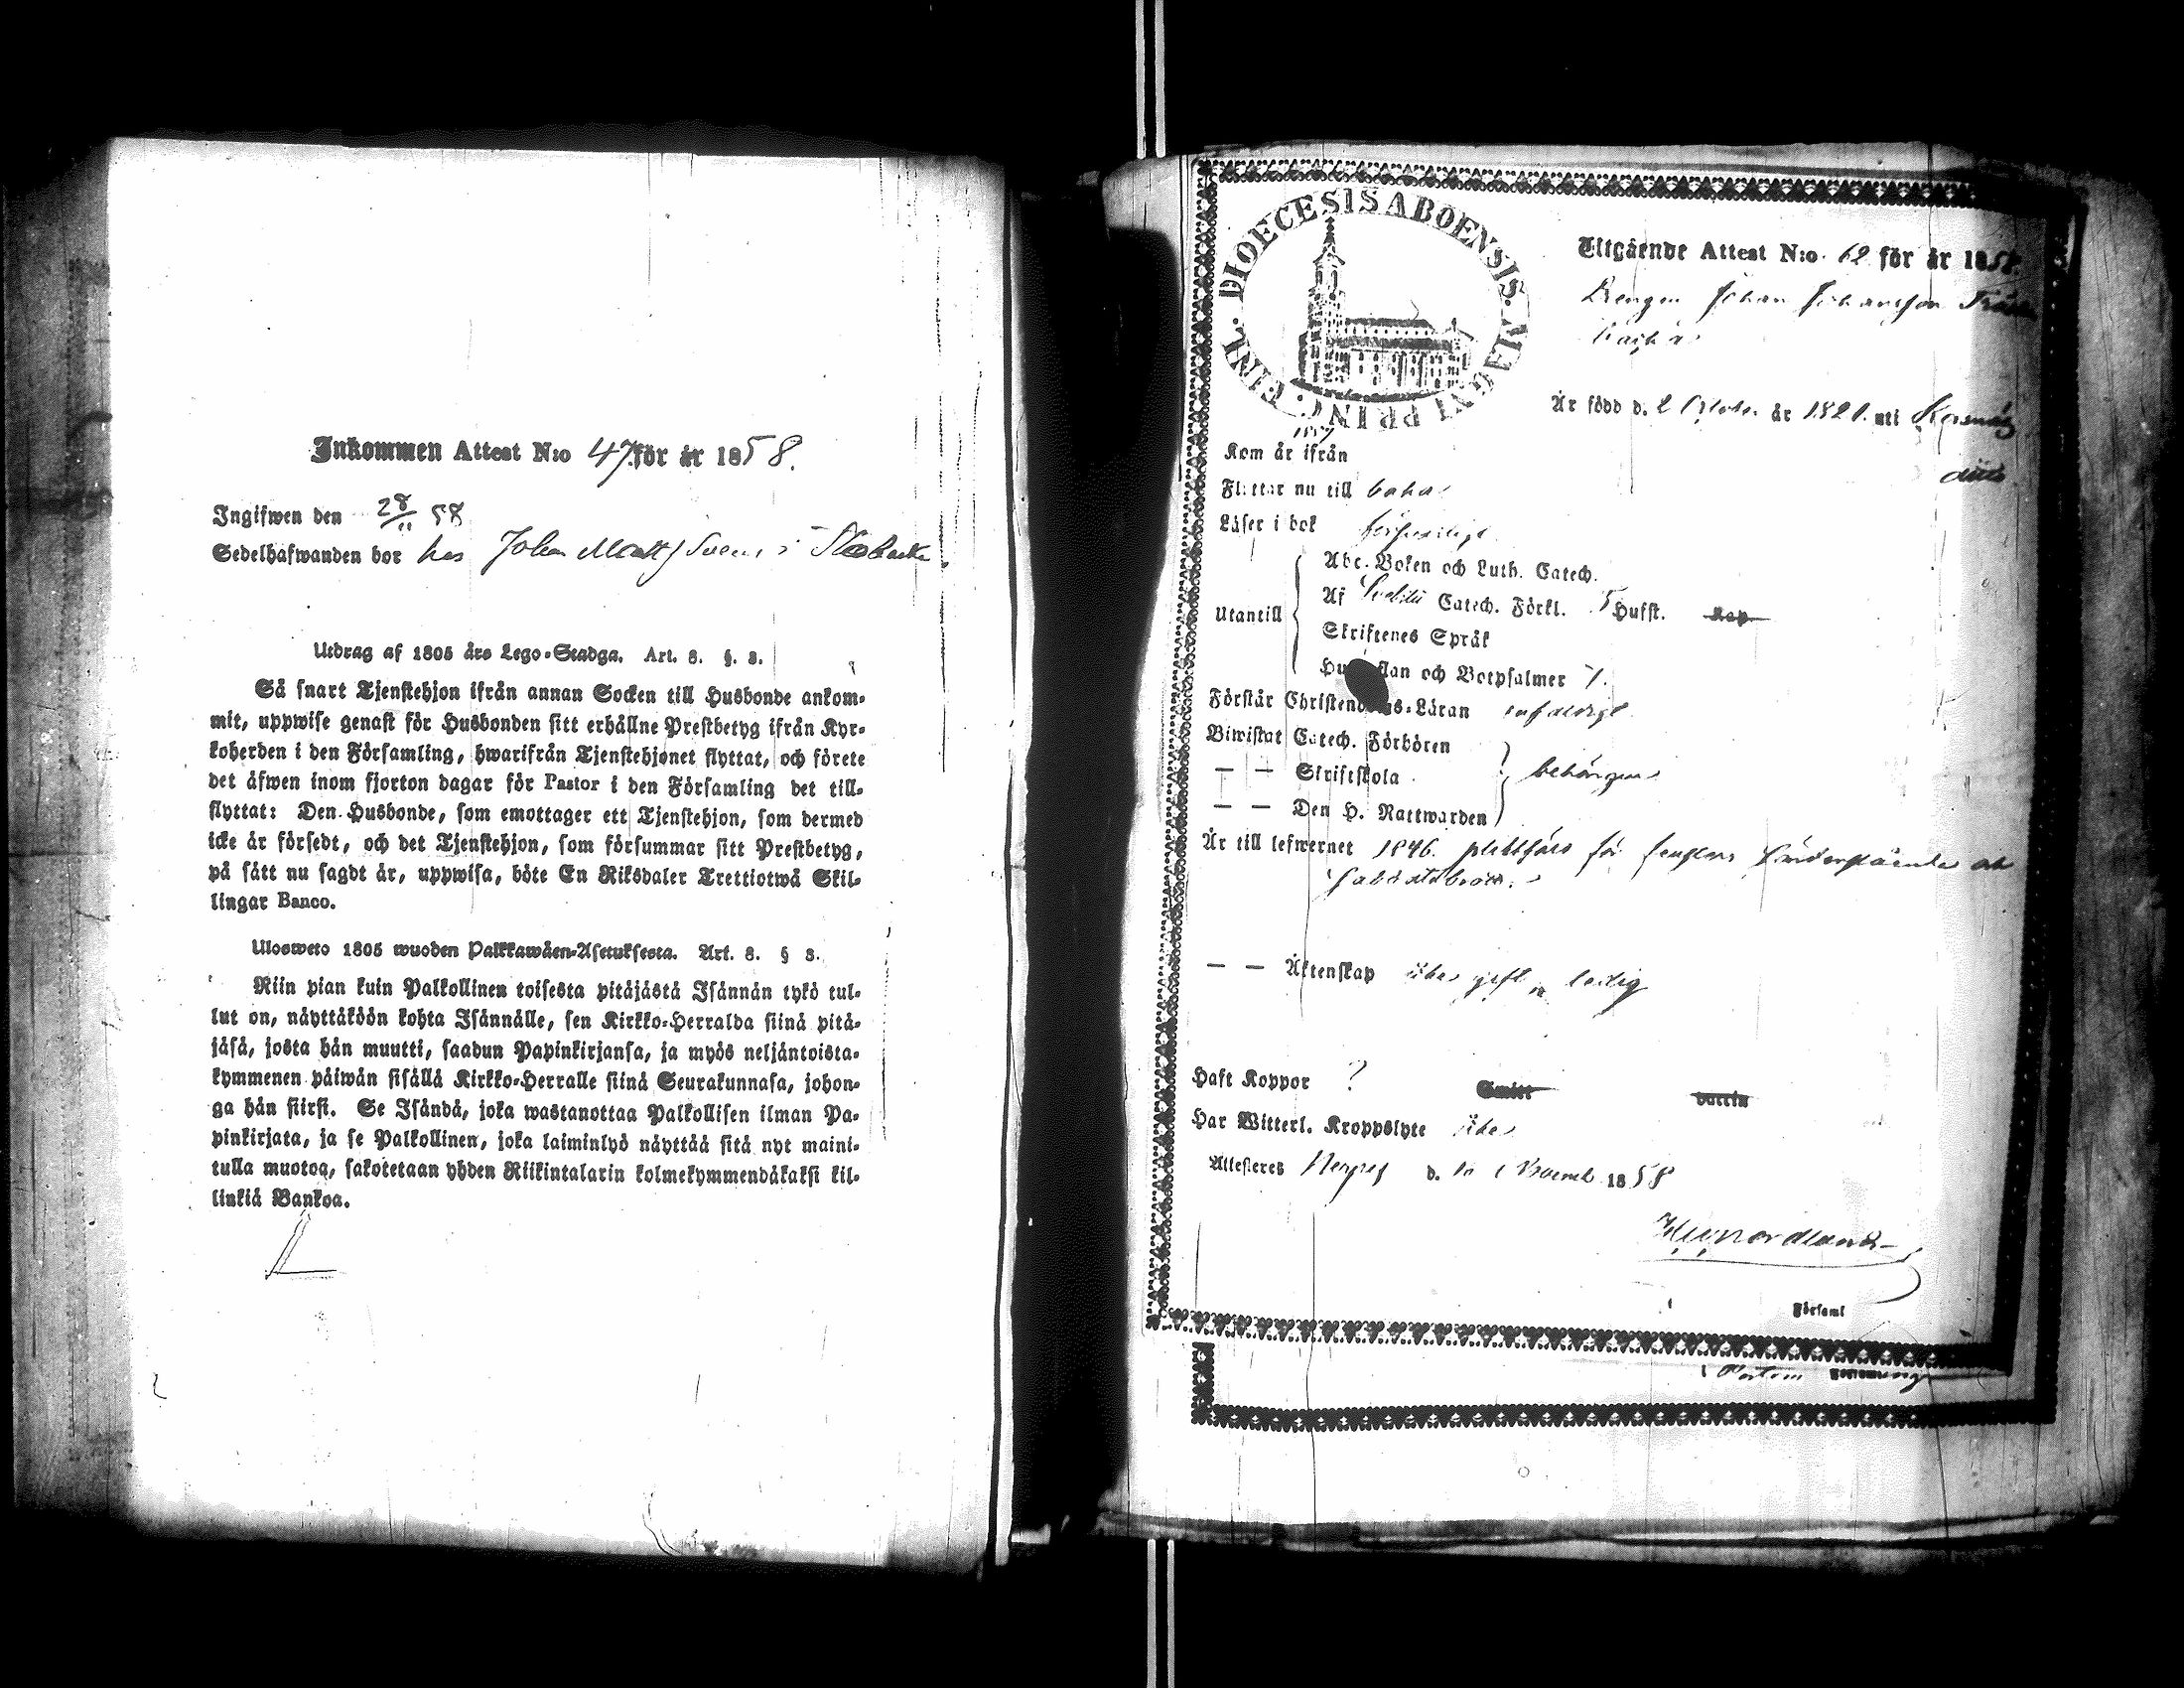 Inkommen Attest N:o 47. för år 1858.
Ingifwen den 28/11 58
Sedelhafwanden bor hos Johan Matts Svens i
Utdrag af 1805 års Lego-Stadga. Art. 8. §. 3.
Så snart Tjenstehjon ifrån annan Socken till Husbonde ankom-
mit, uppwise genast för Husbonden sitt erhållne Prestbetyg ifrån Kyr-
koherden i den Församling, hwarifrån Tjenstehjonet flyttat, och förete
det äfwen inom fjorton dagar för Pastor i den Församling det till-
flyttat: Den Husbonde, som emottager ett Tjenstehjon, som dermed
icke är försedt, och det Tjenstehjon, som försummar sitt Prestbetyg,
på sätt nu sagdt är, uppwisa, böte En Riksdaler Trettiotwå Skil-
lingar Banco.
Ulosweto 1805 wuoden Palkkawäen-Asetuksesta. Art. 8. § 3.
Niin pian kuin Palkollinen toisesta pitäjästä Isännän tykö tul-
lut on, näyttäköön kohta Isännälle, sen Kirkko-Herralda siinä pitä-
jäsä, josta hän muutti, saadun Papinkirjansa, ja myös neljäntoista-
kymmenen päiwän sisällä Kirkko-Herralle siinä Seurakunnasa, johon-
ga hän siirsi. Se Isändä, joka wastanottaa Palkollisen ilman Pa-
pinkirjata, ja se Palkollinen, joka laiminlyö näyttää sitä nyt maini-
tulla muotoa, sakotetaan yhden Riikintalarin kolmekymmendäkaksi kil-
linkiä Bankoa.
DIOECESIS ABOENSIS. MAGNI PRINC. FINL.
Utgående Attest N:o 62 för år 1858.
Drengen Johan Johansson
Är född d. 2 October år 1821. uti Korsnäs
Kom år 1857 ifrån ditto
Flyttar nu till
Läser i bok försvarligt
Utantill
Abc-Boken och Luth. Catech.
Af Svebilii Catech. Förkl. 5 Hufst. Kap
Skriftenes Språk
Hustaflan och Botpsalmer 7.
Förstår Christendoms-Läran enfaldigt
Biwistat Catech. Förhören
— — Skriftskola behörigen
— — Den H. Nattwarden
Är till lefwernet 1846. pliktfärd för och
sabbatsbrott.
— — Äktenskap icke gift ledig
Haft Koppor ?
Har Witterl. Kroppslyte icke
Attesteras Nerpes d. 10 Novemb. 1858
Nordlund
Församl
i Pörtom Församling